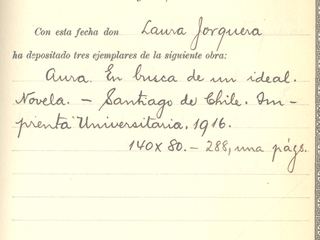 Con esta fecha don Laura Jorquera
ha depositado tres ejemplares de la siguiente obra:
Aura. En busca de un ideal.
Novela. – Santiago de Chile. Im-
prenta Universitaria, 1916.
140 x 80. – 288, una págs.